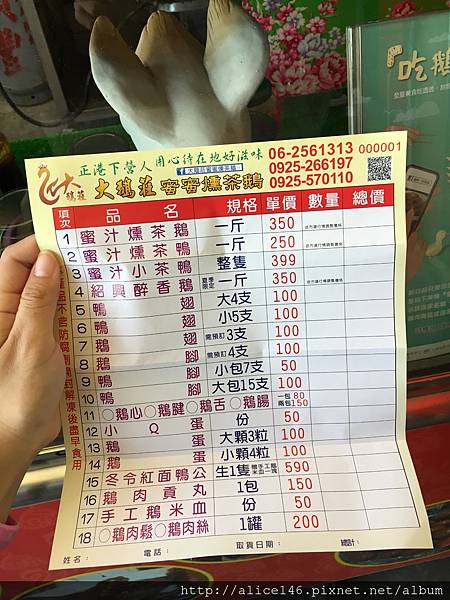 吃鵝
正港下營人用心待在地好滋味
06-2561313 000001
0925-266197
大鵝莊 窖窖燻茶鵝 0925-570110
項次 品名 規格 單價 數量 總價
1 蜜汁燻茶鵝 一斤 350
2 蜜汁燻茶鴨 一斤 250
3 蜜汁小茶鴨 整隻 399
4 紹興醉香鵝 夏季限定 一斤 350
5 鴨翅 大4支 100
6 鴨翅 小5支 100
7 鵝翅 需預訂3支 100
8 鵝腳 需預訂4支 100
9 鴨腳 小包7支 50
10 鴨腳 大包15支 100
11 ○鵝心○鵝腱○鵝舌○鵝腸 一包80 兩包150
12 小Q蛋 份 50
13 鵝蛋 大顆3粒 100
14 鵝蛋 小顆4粒 100
15 冬令紅面鴨公 生1隻 590
16 鵝肉貢丸 1包 150
17 手工鵝米血 份 50
18 ○鵝肉鬆○鵝肉絲 1罐 200
姓名： 電話： 取貨日期： 總計：
http://alice146.pixnet.net/album